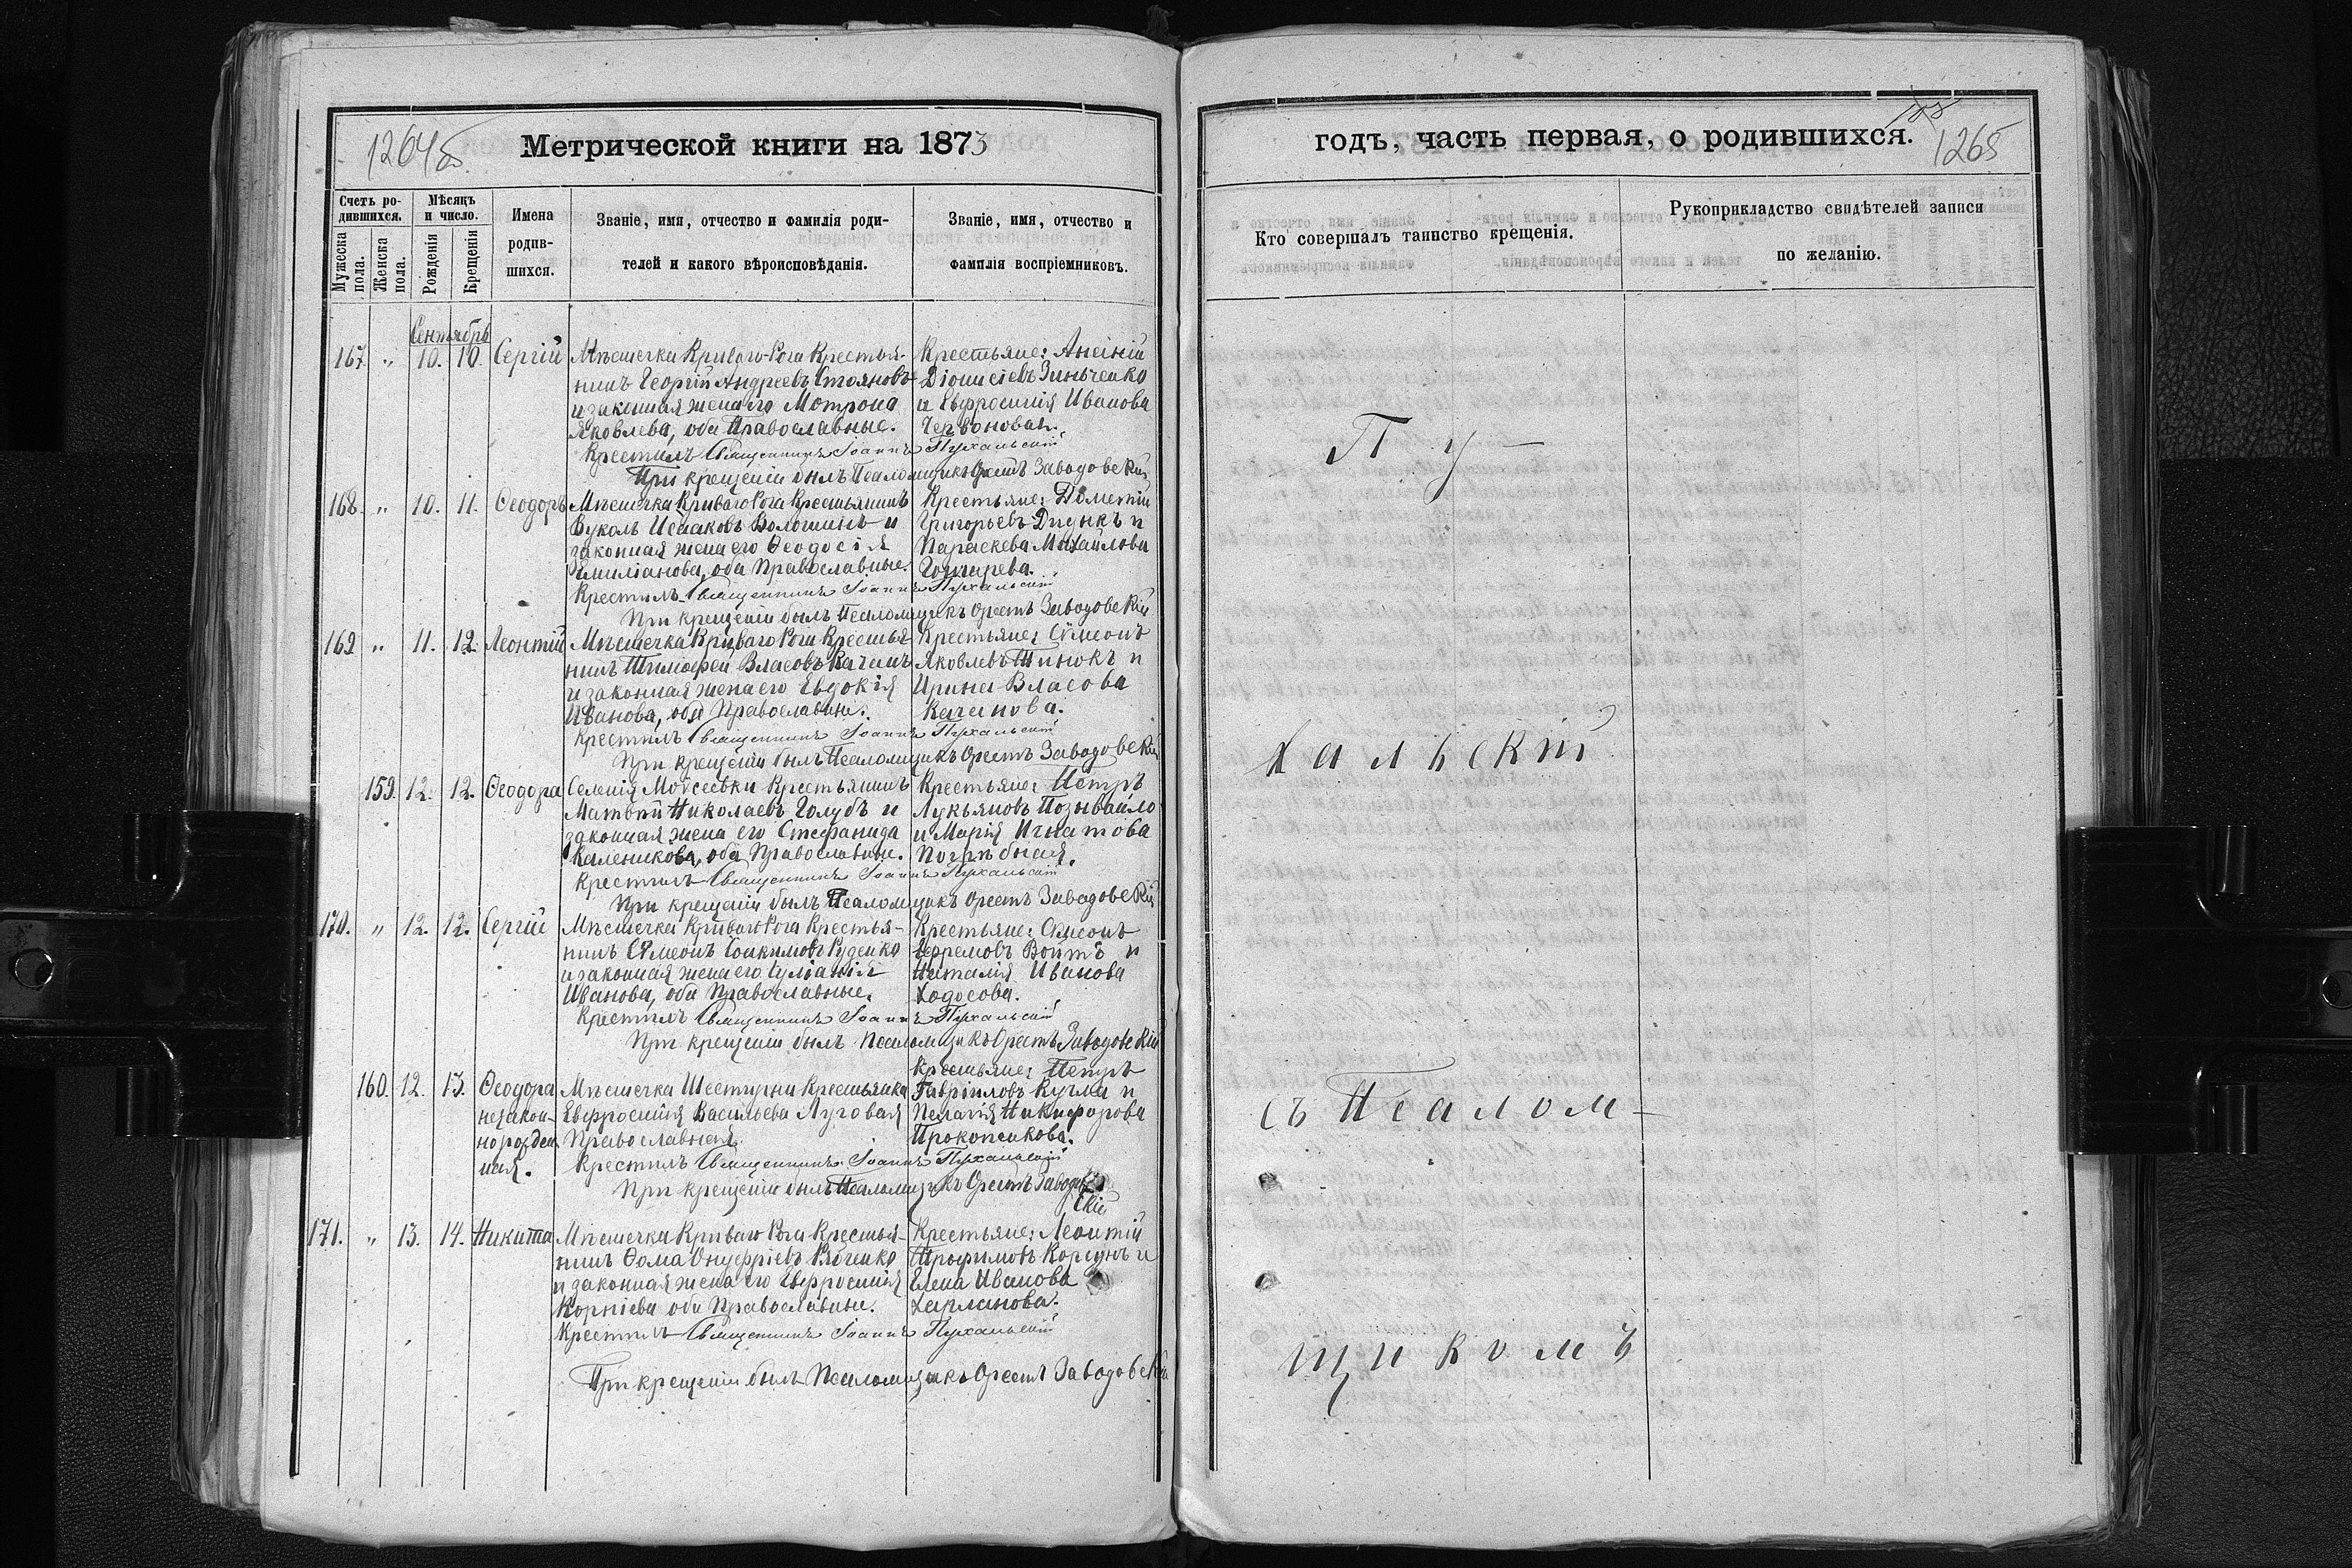 1264об
Метрической книги на 1873
Счетъ ро-
дившихся.
Мѣсяцъ
и число.
Имена
родив-
шихся.
Званіе, имя, отчество и фамилія роди-
телей и какого вѣроисповѣданія.
Званіе, имя, отчество и
фамилія воспріемниковъ.
Мужеска
пола.
Женска
пола.
Рожденія
Крещенія
Сентябрь
167. „ 10. 10. Сергій Мѣстечка Криваго-Рога Крестья- Крестьяне:
нинъ Георгій Андреевъ Стояновъ Діонисіевъ Зинченко
и законная жена его Мотрона и Евфросинія Иванова
Яковлева, оба Православные. Червоновая.
Крестилъ Священникъ Іоаннъ Пухальскій
При крещеніи былъ Псаломщикъ Орестъ Заводовскій
168. „ 10. 11. Ѳеодоръ Мѣстечка Криваго Рога Крестьянинъ Крестьяне: Дометій
Вуколъ Исааковъ Волошинъ и Григорьевъ Дидукъ и
законная жена его Ѳеодосія Параскева Михайлова
Емиліанова, оба Православные. Гончарева.
Крестилъ Священникъ Іоаннъ Пухальскій
При крещеніи былъ Псаломщикъ Орестъ Заводовскій
169 „ 11. 12. Леонтій Мѣстечка Криваго Рога Крестья- Крестьяне: Сѵмеонъ
нинъ Тимофей Власовъ Качанъ Яковлевъ и
и законная жена его Евдокія Ирина Власова
Иванова, оба Православные. Качанова.
Крестилъ Священникъ Іоаннъ Пухальскій
При крещеніи былъ Псаломщикъ Орестъ Заводовскій
159. 12. 12. Ѳеодора Селенія Моѵсеевки Крестьянинъ Крестьяне: Петръ
Матвѣй Николаевъ Голубъ и Лукьяновъ Позывайло
законная жена его Стефанида и Марія Игнатова
Каленикова, оба Православные. Погребная.
Крестилъ Священникъ Іоаннъ Пухальскій
При крещеніи былъ Псаломщикъ Орестъ Заводовскій
170. „ 12. 12. Сергій Мѣстечка Криваго Рога Крестья- Крестьяне: Сѵмеонъ
нинъ Сѵмеонъ Іоакимовъ Руденко Ефремовъ Войтъ и
и законная жена его Іуліанія Наталія Иванова
Иванова, оба Православные. Ходосова.
Крестилъ Священникъ Іоаннъ Пухальскій
При крещеніи былъ Псаломщикъ Орестъ Заводовскій
Крестьяне: Петръ
160. 12. 13. Ѳеодора Мѣстечка Шестирни Крестьянка Гавріиловъ Кучма и
незакон- Евфросинія Васильева Луговая Пелагія Никифорова
норожден- Православная. Прокопенкова.
ная. Крестилъ Священникъ Іоаннъ Пухальскій
При крещеніи былъ Псаломщикъ Орестъ Заводов-
скій
171. „ 13. 14. Никита Мѣстечка Криваго Рога Крестья- Крестьяне: Леонтій
нинъ Ѳома Онуфріевъ Рябченко Трофимовъ Корсунъ и
и законная жена его Евфросинія Елена Иванова
Корніева оба Православные. Харланова.
Крестилъ Священникъ Іоаннъ Пухальскій
При крещеніи былъ Псаломщикъ Орестъ Заводовскій
годъ, часть первая, о родившихся.
1265
Кто совершалъ таинство крещенія.
Рукоприкладство свидѣтелей записи
по желанію.
Пу-
хальскій
съ Псалом-
щикомъ